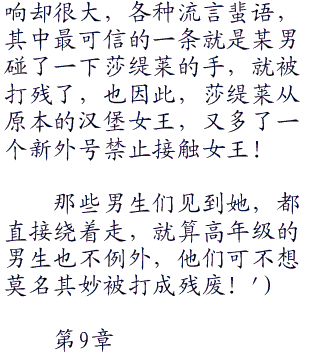 响却很大，各种流言蜚语，
其中最可信的一条就是某男
碰了一下莎缇莱的手，就被
打残了，也因此，莎缇莱从
原本的汉堡女王，又多了一
个新外号禁止接触女王！
那些男生们见到她，都
直接绕着走，就算高年级的
男生也不例外，他们可不想
莫名其妙被打成残废！′)
第9章